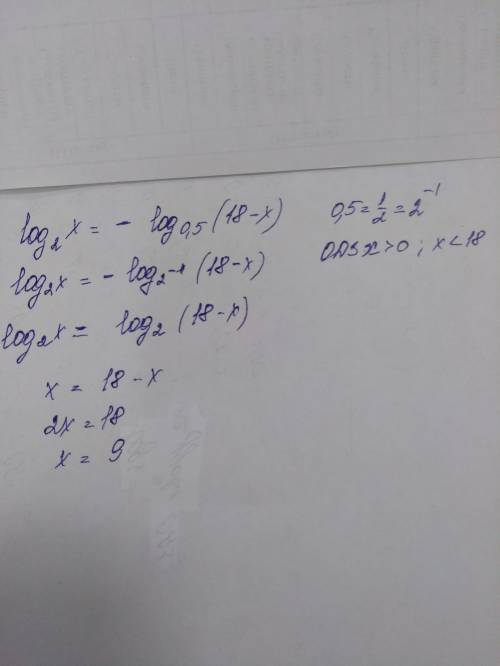 log₂x = - log₀,₅(18-x)
0,5 = 1/2 = 2⁻¹
ОДЗ x>0; x<18
log₂x = - log₂₋₁(18-x)
log₂x = log₂(18-x)
x = 18-x
2x = 18
x = 9